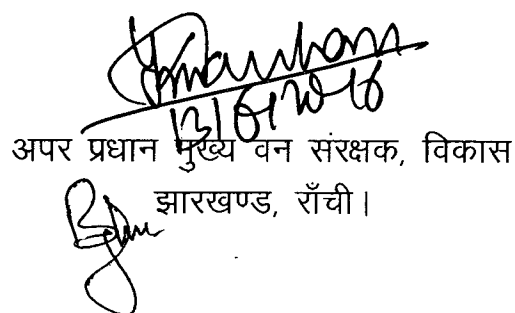 13/6/2016
अपर प्रधान मुख्य वन संरक्षक, विकास
झारखण्ड, राँची।